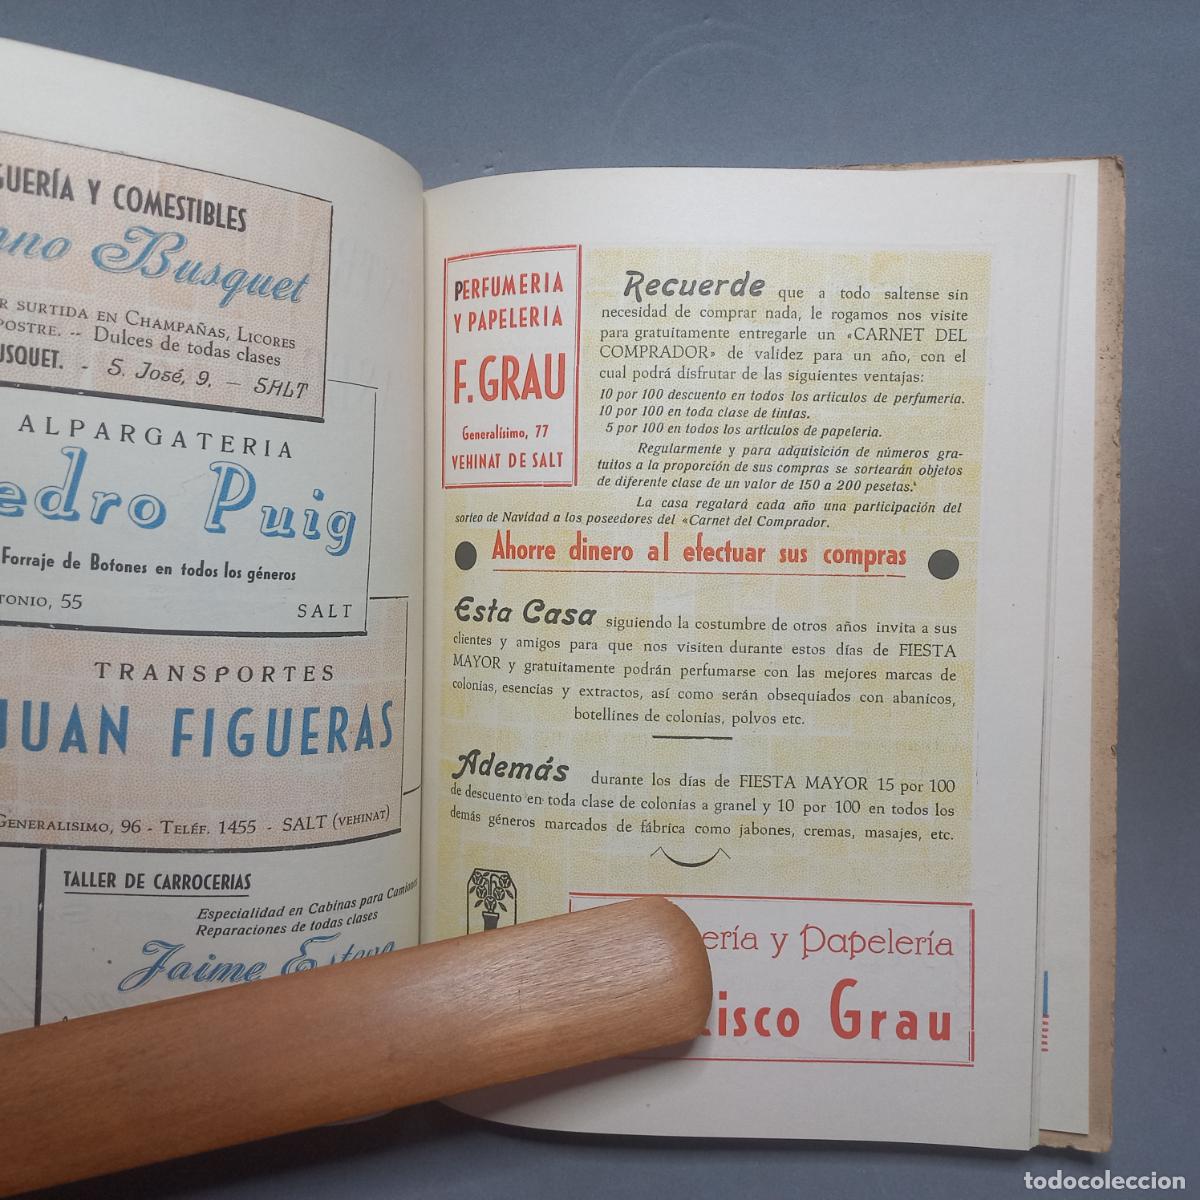 GUERÍA Y COMESTIBLES
Busquet
R SURTIDA EN CHAMPAÑAS, LICORES
POSTRE. -- Dulces de todas clases
USQUET. - S. José, 9. — SALT
ALPARGATERIA
edro Puig
Forraje de Botones en todos los géneros
TONIO, 55 SALT
TRANSPORTES
JUAN FIGUERAS
GENERALISIMO, 96 - TELÉF. 1455 - SALT (VEHINAT)
TALLER DE CARROCERIAS
Especialidad en Cabinas para Camiones
Reparaciones de todas clases
Jaime Esteva
PERFUMERIA
Y PAPELERIA
F. GRAU
Generalísimo, 77
VEHINAT DE SALT
Recuerde que a todo saltense sin
necesidad de comprar nada, le rogamos nos visite
para gratuítamente entregarle un «CARNET DEL
COMPRADOR» de validez para un año, con el
cual podrá disfrutar de las siguientes ventajas:
10 por 100 descuento en todos los articulos de perfumería.
10 por 100 en toda clase de tintas.
5 por 100 en todos los articulos de papeleria.
Regularmente y para adquisición de números gra-
tuitos a la proporción de sus compras se sortearán objetos
de diferente clase de un valor de 150 a 200 pesetas.
La casa regalará cada año una participación del
sorteo de Navidad a los poseedores del «Carnet del Comprador.
Ahorre dinero al efectuar sus compras
Esta Casa siguiendo la costumbre de otros años invita a sus
clientes y amigos para que nos visiten durante estos días de FIESTA
MAYOR y gratuitamente podrán perfumarse con las mejores marcas de
colonias, esencias y extractos, así como serán obsequiados con abanicos,
botellines de colonias, polvos etc.
Además durante los días de FIESTA MAYOR 15 por 100
de descuento en toda clase de colonias a granel y 10 por 100 en todos los
demás géneros marcados de fábrica como jabones, cremas, masajes, etc.
ería y Papelería
cisco Grau
todocoleccion